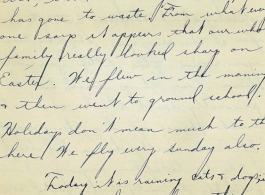 has gone to waste. From what
one says it appears that our who
family really looked sharp on
Easter. We flew in the morning
& then went to ground school.
Holidays don't mean much to th
here. We fly every sunday also.
Today it is raining cats & dogs